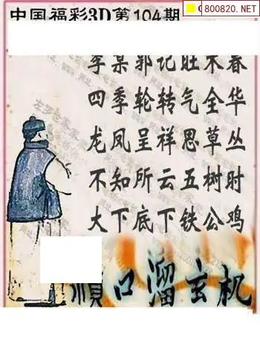 中国福彩3D第104期
800820.NET
四季轮转气全华
龙凤呈祥思草丛
不知所云五树时
大下底下铁公鸡
顺口溜玄机